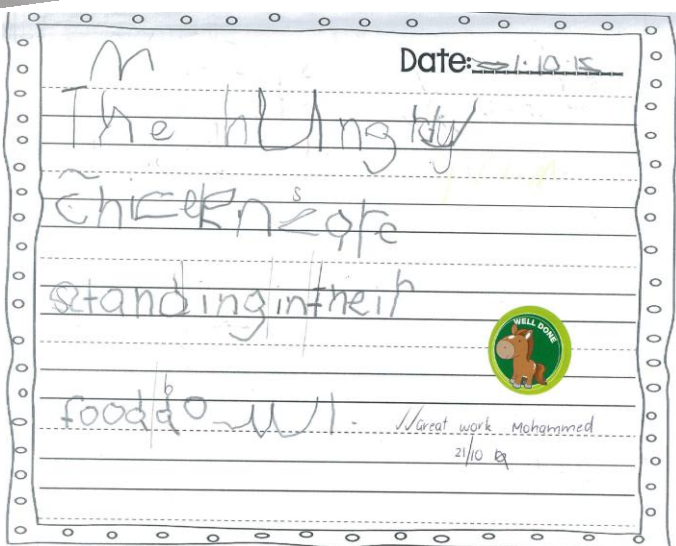 M
Date: 21.10.15
The hUngry
Chickens are
standing in their
food bowl.
WELL DONE
Great work Mohammed
21/10